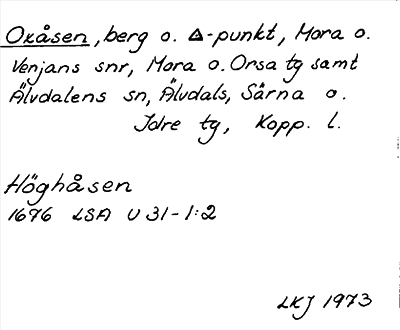 Oxåsen, berg o. Δ-punkt, Mora o.
Venjans snr, Mora o. Orsa tg samt
Älvdalens sn, Älvdals, Särna o.
Idre tg, Kopp. l.
Höghåsen
1676 LSA U 31-1:2
LKJ 1973